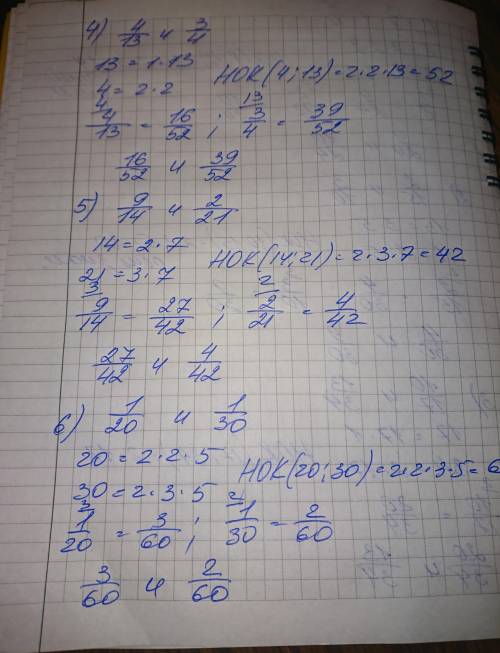 4) 4/13 и 3/4
13 = 1·13
4 = 2·2 НОК(4;13) = 2·2·13 = 52
4 4/13 = 16/52 ; 13 3/4 = 39/52
16/52 и 39/52
5) 9/14 и 2/21
14 = 2·7
21 = 3·7 НОК(14;21) = 2·3·7 = 42
3 9/14 = 27/42 ; 2 2/21 = 4/42
27/42 и 4/42
6) 1/20 и 1/30
20 = 2·2·5
30 = 2·3·5 НОК(20;30) = 2·2·3·5 = 6
3 1/20 = 3/60 ; 2 1/30 = 2/60
3/60 и 2/60